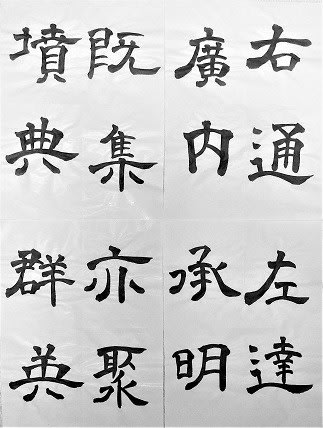 右通
廣内
左達
承明
既集
墳典
亦聚
群英